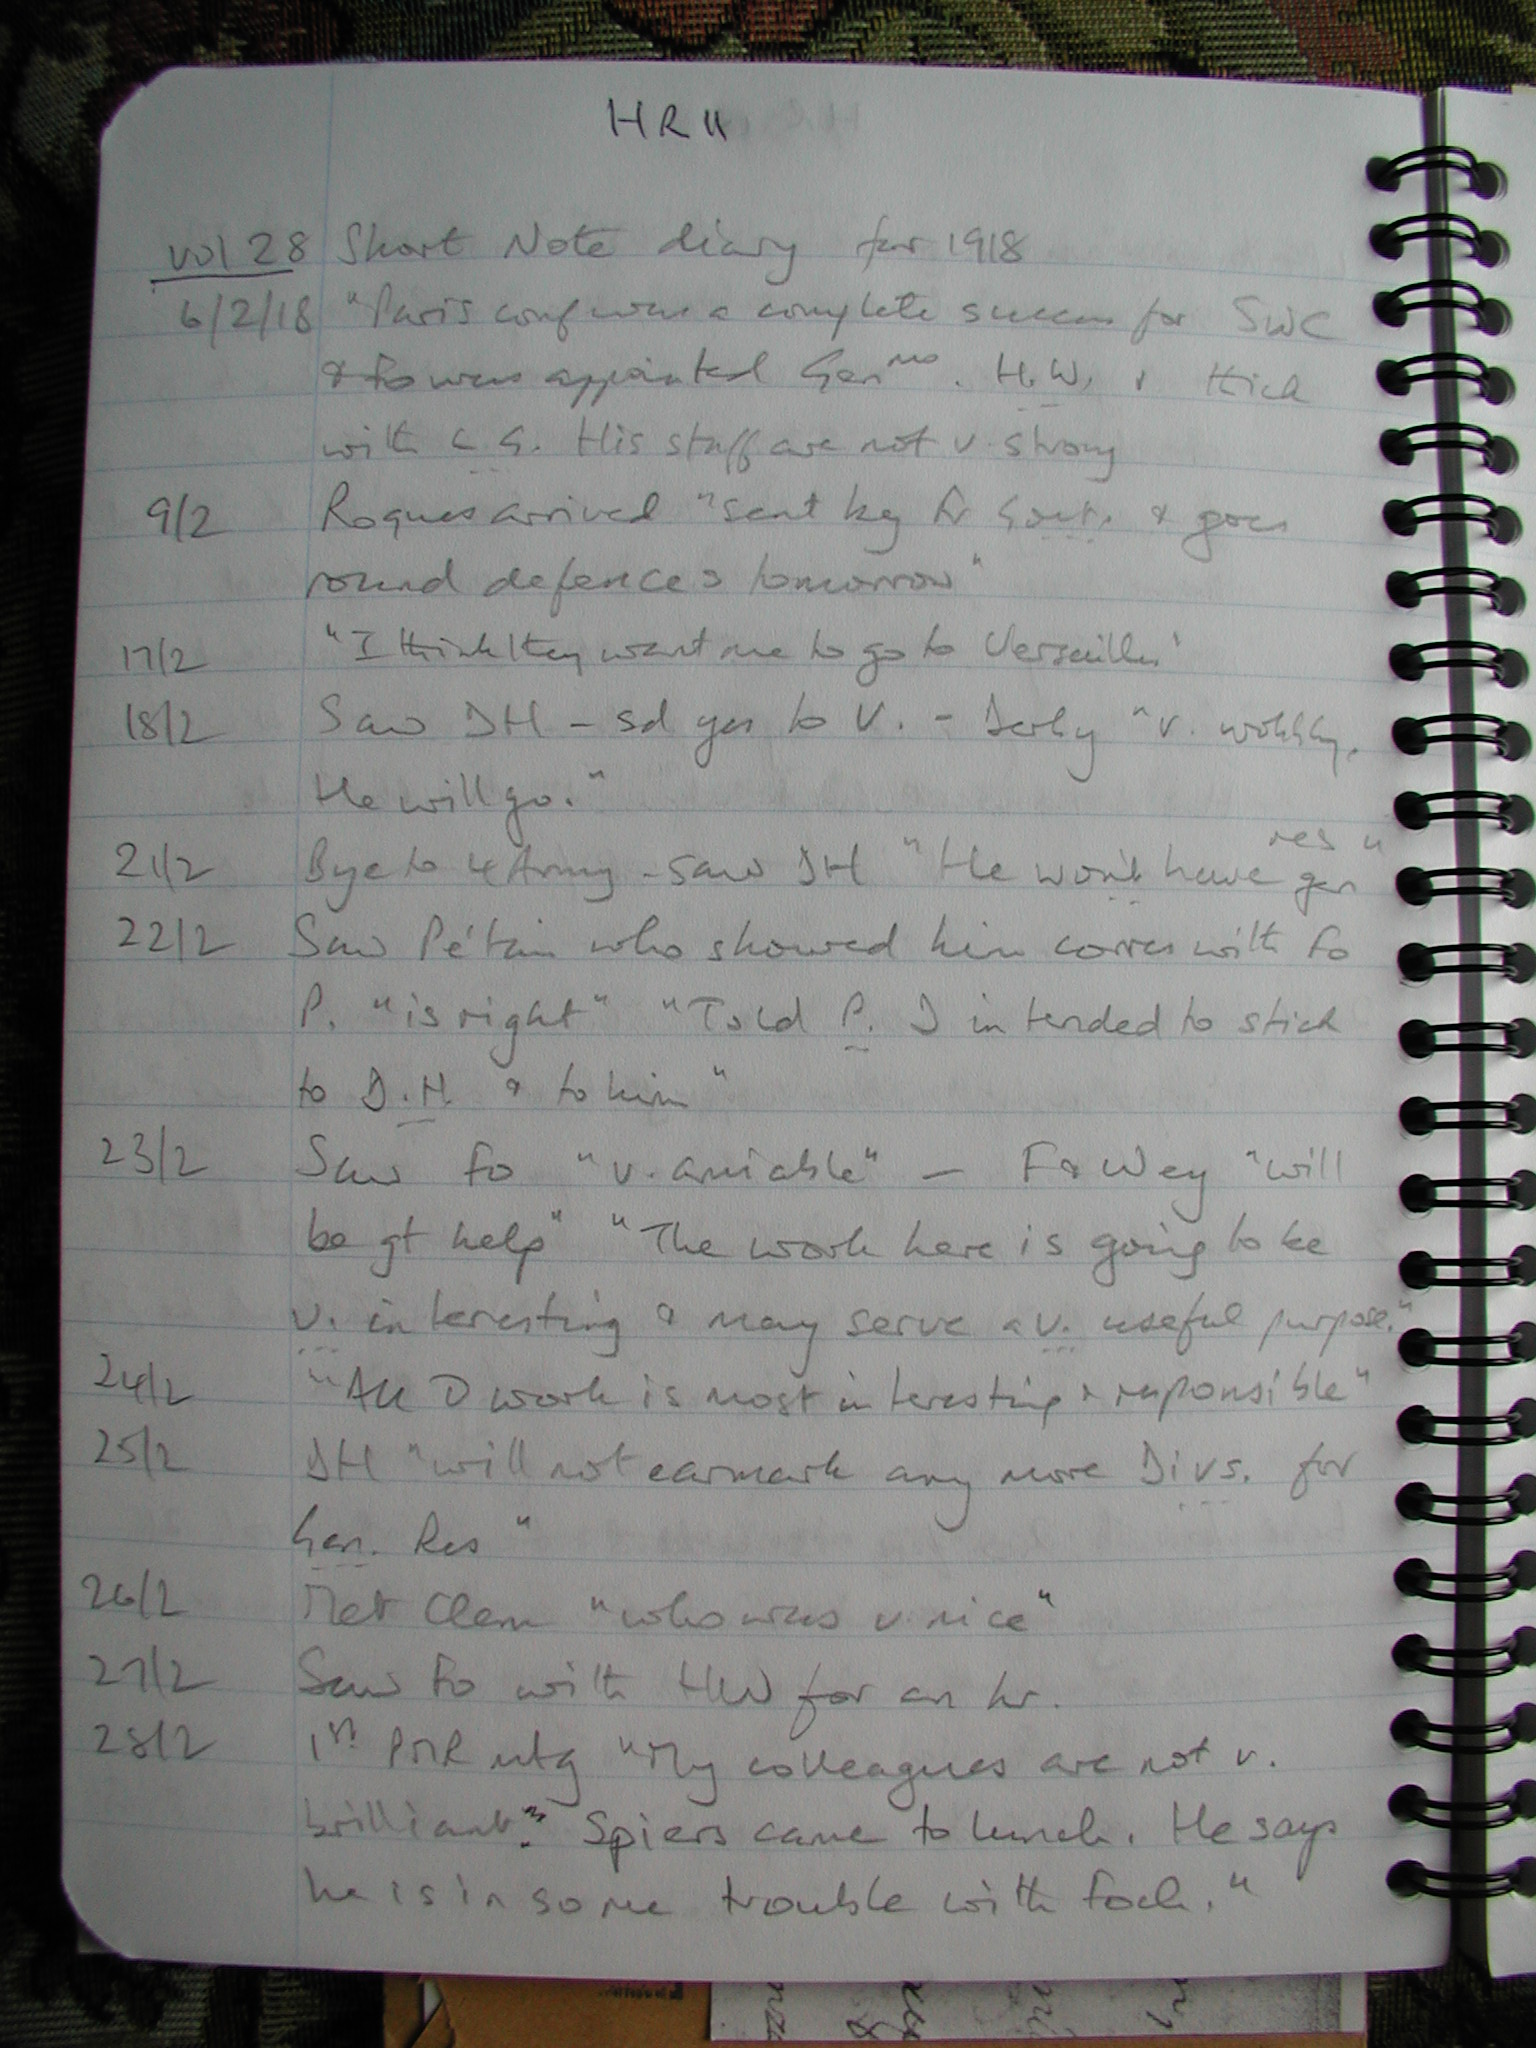 HR 11
vol 28 Short Note diary for 1918
6/2/18 "Paris conf was a complete success for SWC
& Fo was appointed Gen mo. H.W. & thick
with C G. His staff are not v. strong
9/2 Roques arrived "sent by Fr Govt. & goes
round defences tomorrow"
17/2 "I think they want me to go to Versailles"
18/2 Saw DH - sd yes to V. - Derby "v. wobbly.
He will go."
21/2 Bye to 4 Army - saw DH "He won't have gen res"
22/2 Saw Pétain who showed him corres with Fo
P. "is right" "Told P. I intended to stick
to D.H. & to him"
23/2 Saw Fo "v. amiable" - F & Wey "will
be gt help" "The work here is going to be
v. interesting & may serve a v. useful purpose."
24/2 "All D work is most interesting & responsible"
25/2 DH "will not earmark any more Divs. for
Gen. Res"
26/2 Met Clem "who was v. nice"
27/2 Saw Fo with HW for an hr.
28/2 1st PMR mtg "My colleagues are not v.
brilliant". Spiers came to lunch. He says
he is in some trouble with Foch."